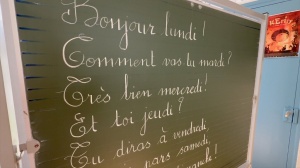 Bonjour lundi !
Comment vas tu mardi ?
Très bien mercredi !
Et toi jeudi ?
Tu diras à vendredi
pars samedi